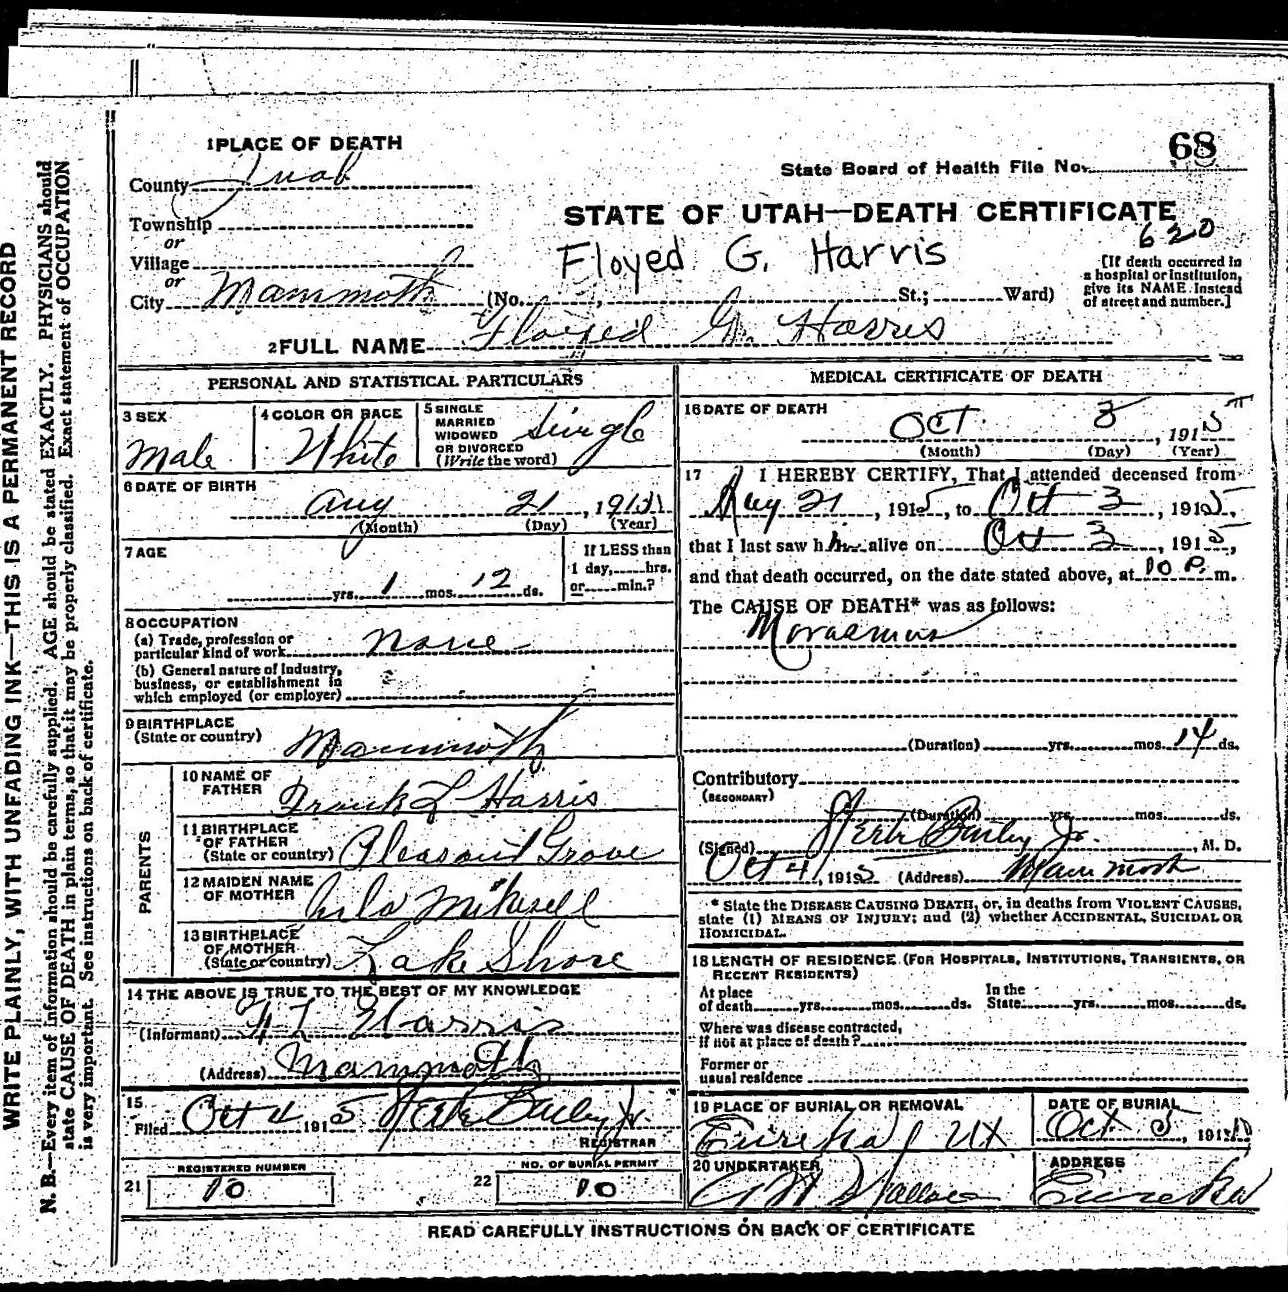 WRITE PLAINLY, WITH UNFADING INK—THIS IS A PERMANENT RECORD
N. B.—Every item of information should be carefully supplied. AGE should be stated EXACTLY. PHYSICIANS should
state CAUSE OF DEATH in plain terms, so that it may be properly classified. Exact statement of OCCUPATION
is very important. See instructions on back of certificate.
1 PLACE OF DEATH
County Juab
Township
or
Village
or
City Mammoth (No. , St.; Ward)
State Board of Health File No. 68
STATE OF UTAH—DEATH CERTIFICATE
620
Floyed G. Harris
[If death occurred in
a hospital or institution,
give its NAME instead
of street and number.]
2 FULL NAME Floyed G. Harris
PERSONAL AND STATISTICAL PARTICULARS
3 SEX
Male
4 COLOR OR RACE
White
5 SINGLE
MARRIED
WIDOWED
OR DIVORCED
(Write the word)
Single
6 DATE OF BIRTH
Aug 21, 191
(Month) (Day) (Year)
7 AGE
yrs. 1 mos. 12 ds.
If LESS than
1 day, hrs.
or min.?
8 OCCUPATION
(a) Trade, profession or
particular kind of work None
(b) General nature of Industry,
business, or establishment in
which employed (or employer)
9 BIRTHPLACE
(State or country) Mammoth
PARENTS
10 NAME OF
FATHER Frank L Harris
11 BIRTHPLACE
OF FATHER
(State or country) Pleasant Grove
12 MAIDEN NAME
OF MOTHER Mikesell
13 BIRTHPLACE
OF MOTHER
(State or country) Lake Shore
14 THE ABOVE IS TRUE TO THE BEST OF MY KNOWLEDGE
(Informant) F L Harris
(Address) Mammoth
15
Filed Oct 4 1915 Bailey Jr.
REGISTRAR
REGISTERED NUMBER
21 10
NO. OF BURIAL PERMIT
22 10
MEDICAL CERTIFICATE OF DEATH
16 DATE OF DEATH
Oct. 3, 1915
(Month) (Day) (Year)
17 I HEREBY CERTIFY, That I attended deceased from
Aug 21, 1915, to Oct 3, 1915,
that I last saw him alive on Oct 3, 1915,
and that death occurred, on the date stated above, at 10 P. m.
The CAUSE OF DEATH* was as follows:
Marasmus
(Duration) yrs. mos. 14 ds.
Contributory
(SECONDARY)
(Duration) yrs. mos. ds.
(Signed) Bailey Jr., M. D.
Oct 4, 1915 (Address) Mammoth
* State the DISEASE CAUSING DEATH, or, in deaths from VIOLENT CAUSES,
state (1) MEANS OF INJURY; and (2) whether ACCIDENTAL, SUICIDAL OR
HOMICIDAL.
18 LENGTH OF RESIDENCE (FOR HOSPITALS, INSTITUTIONS, TRANSIENTS, OR
RECENT RESIDENTS)
At place
of death yrs. mos. ds.
In the
State yrs. mos. ds.
Where was disease contracted,
if not at place of death?
Former or
usual residence
19 PLACE OF BURIAL OR REMOVAL
Eureka, Ut
DATE OF BURIAL
Oct. 5, 191
20 UNDERTAKER
Wallace
ADDRESS
Eureka
READ CAREFULLY INSTRUCTIONS ON BACK OF CERTIFICATE